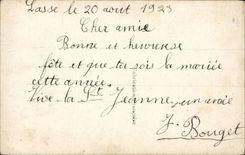 Lasse le 20 aout 1923
Cher amie
Bonne et heureuse
fête et que tu sois la mariée
cette année.
Vive la Ste Jeanne, un amie
J. Bouget